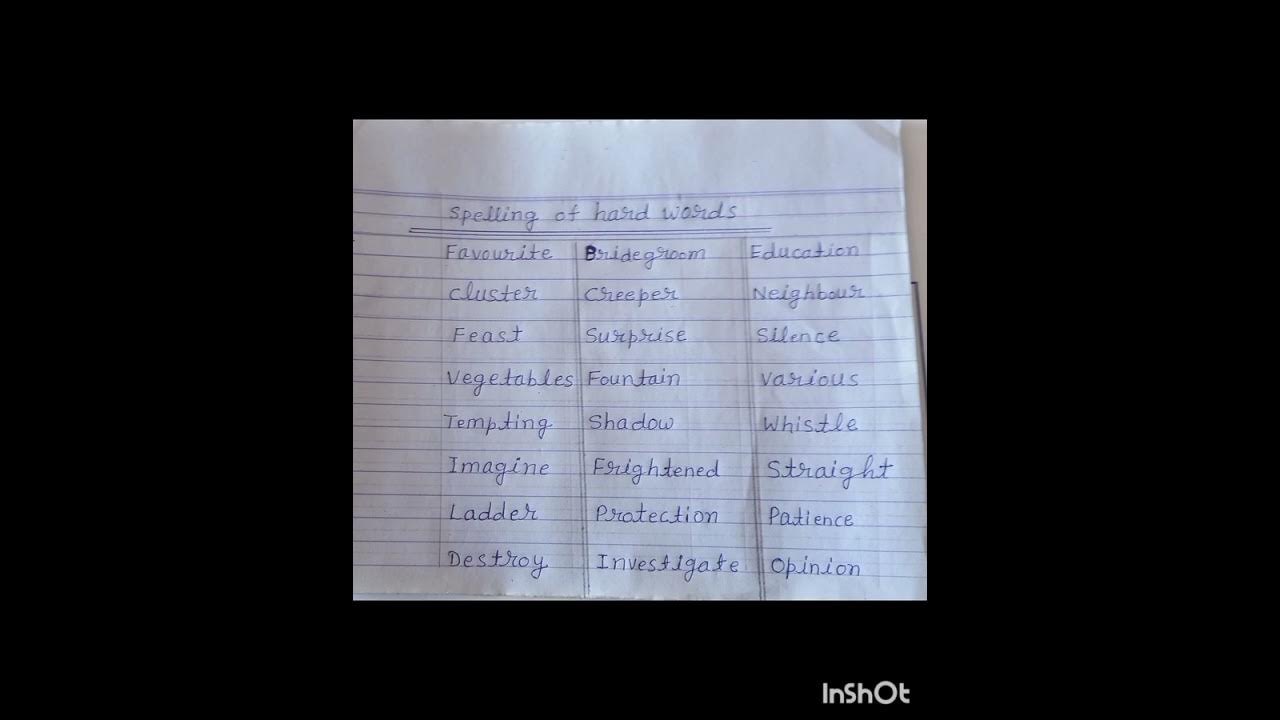 Spelling of hard words
Favourite Bridegroom Education
Cluster Creeper Neighbour
Feast Surprise Silence
Vegetables Fountain Various
Tempting Shadow Whistle
Imagine Frightened Straight
Ladder Protection Patience
Destroy Investigate Opinion
InShOt